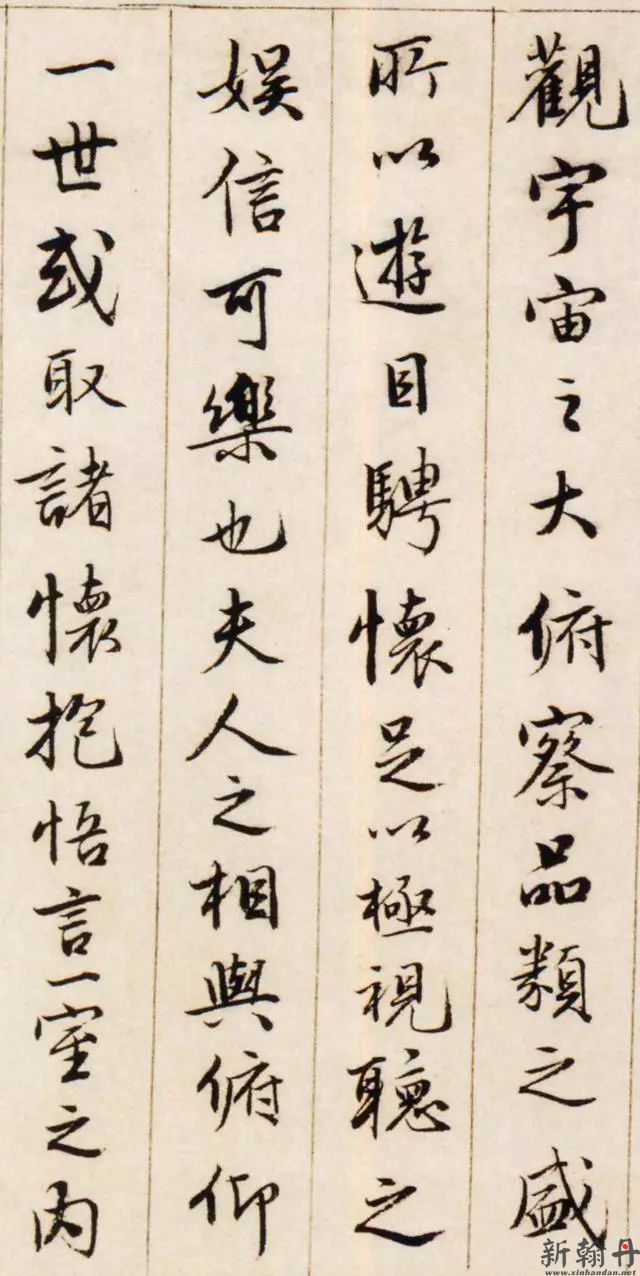 觀宇宙之大俯察品類之盛
所以遊目騁懷足以極視聽之
娛信可樂也夫人之相與俯仰
一世或取諸懷抱悟言一室之內
新翰丹
www.xinhandan.net